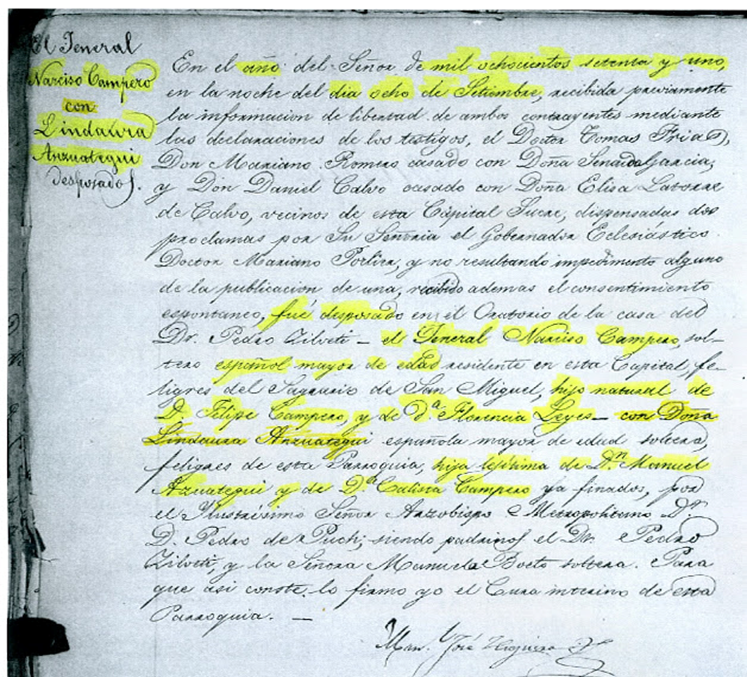 El Jeneral
Narciso Campero
con
Lindaura
Anzuategui
desposados.
En el año del Señor de mil ochocientos setenta y uno,
en la noche del dia ocho de Setiembre, recibida previamente
la informacion de libertad de ambos contrayentes mediante
las declaraciones de los testigos, el Doctor Tomas Frias,
Don Mariano Romero casado con Doña Senaida Garcia,
y Don Daniel Calvo casado con Doña Elisa Latorre
de Calvo, vecinos de esta Capital Sucre, dispensadas dos
proclamas por Su Señoria el Gobernador Eclesiástico
Doctor Mariano y no resultando impedimento alguno
de la publicacion de una, recibido ademas el consentimiento
espontaneo, fué desposado en el Oratorio de la casa del
Dr. Pedro Zilveti – el Jeneral Narciso Campero, sol-
tero español mayor de edad residente en esta Capital, fe-
ligres del Sagrario de San Miguel, hijo natural de
D. Felipe Campero, y de D.ª Florencia Leyes – con Doña
Lindaura Anzuategui española mayor de edad soltera,
feligres de esta Parroquia, hija lejitima de D.n Manuel
Azuategui y de D.ª Calista Campero ya finados, por
el Ilustrísimo Señor Arzobispo Metropolitano D.r
D. Pedro de Puch; siendo padrinos el Dr. Pedro
Zilveti, y la Señora Manuela Boeto soltera. Para
que asi conste lo firmo yo el Cura interino de esta
Parroquia. –
Man. José